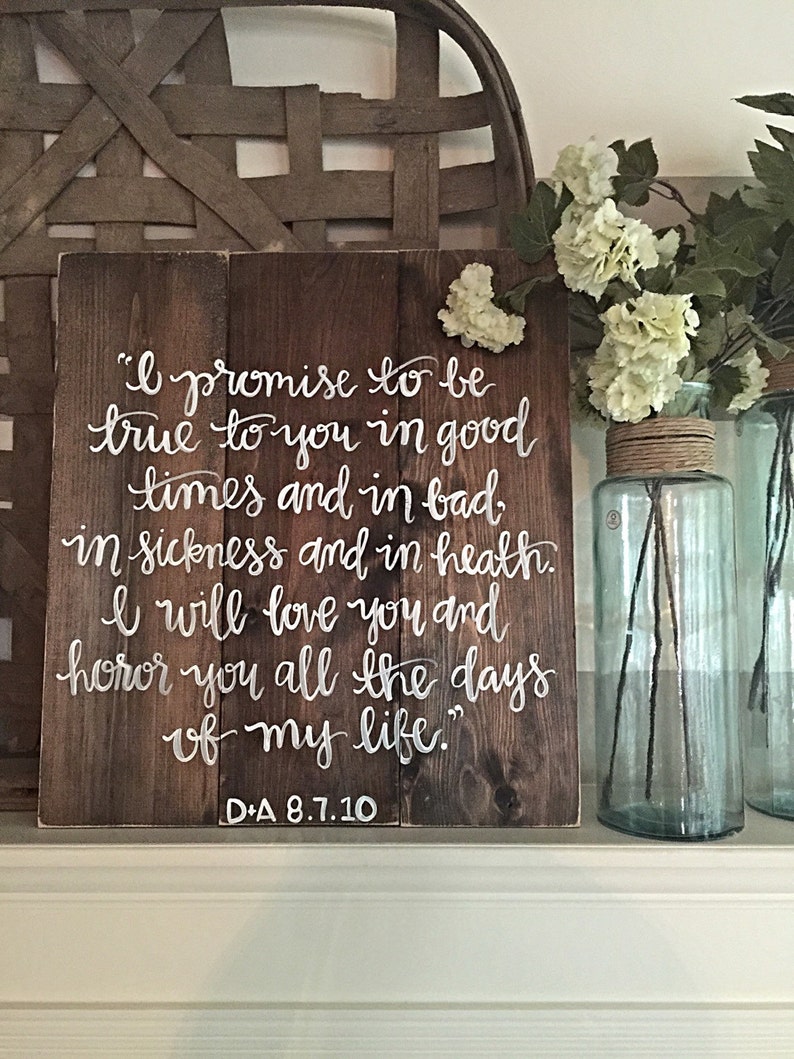 “I promise to be
true to you in good
times and in bad,
in sickness and in health.
I will love you and
honor you all the days
of my life.”
D+A 8.7.10